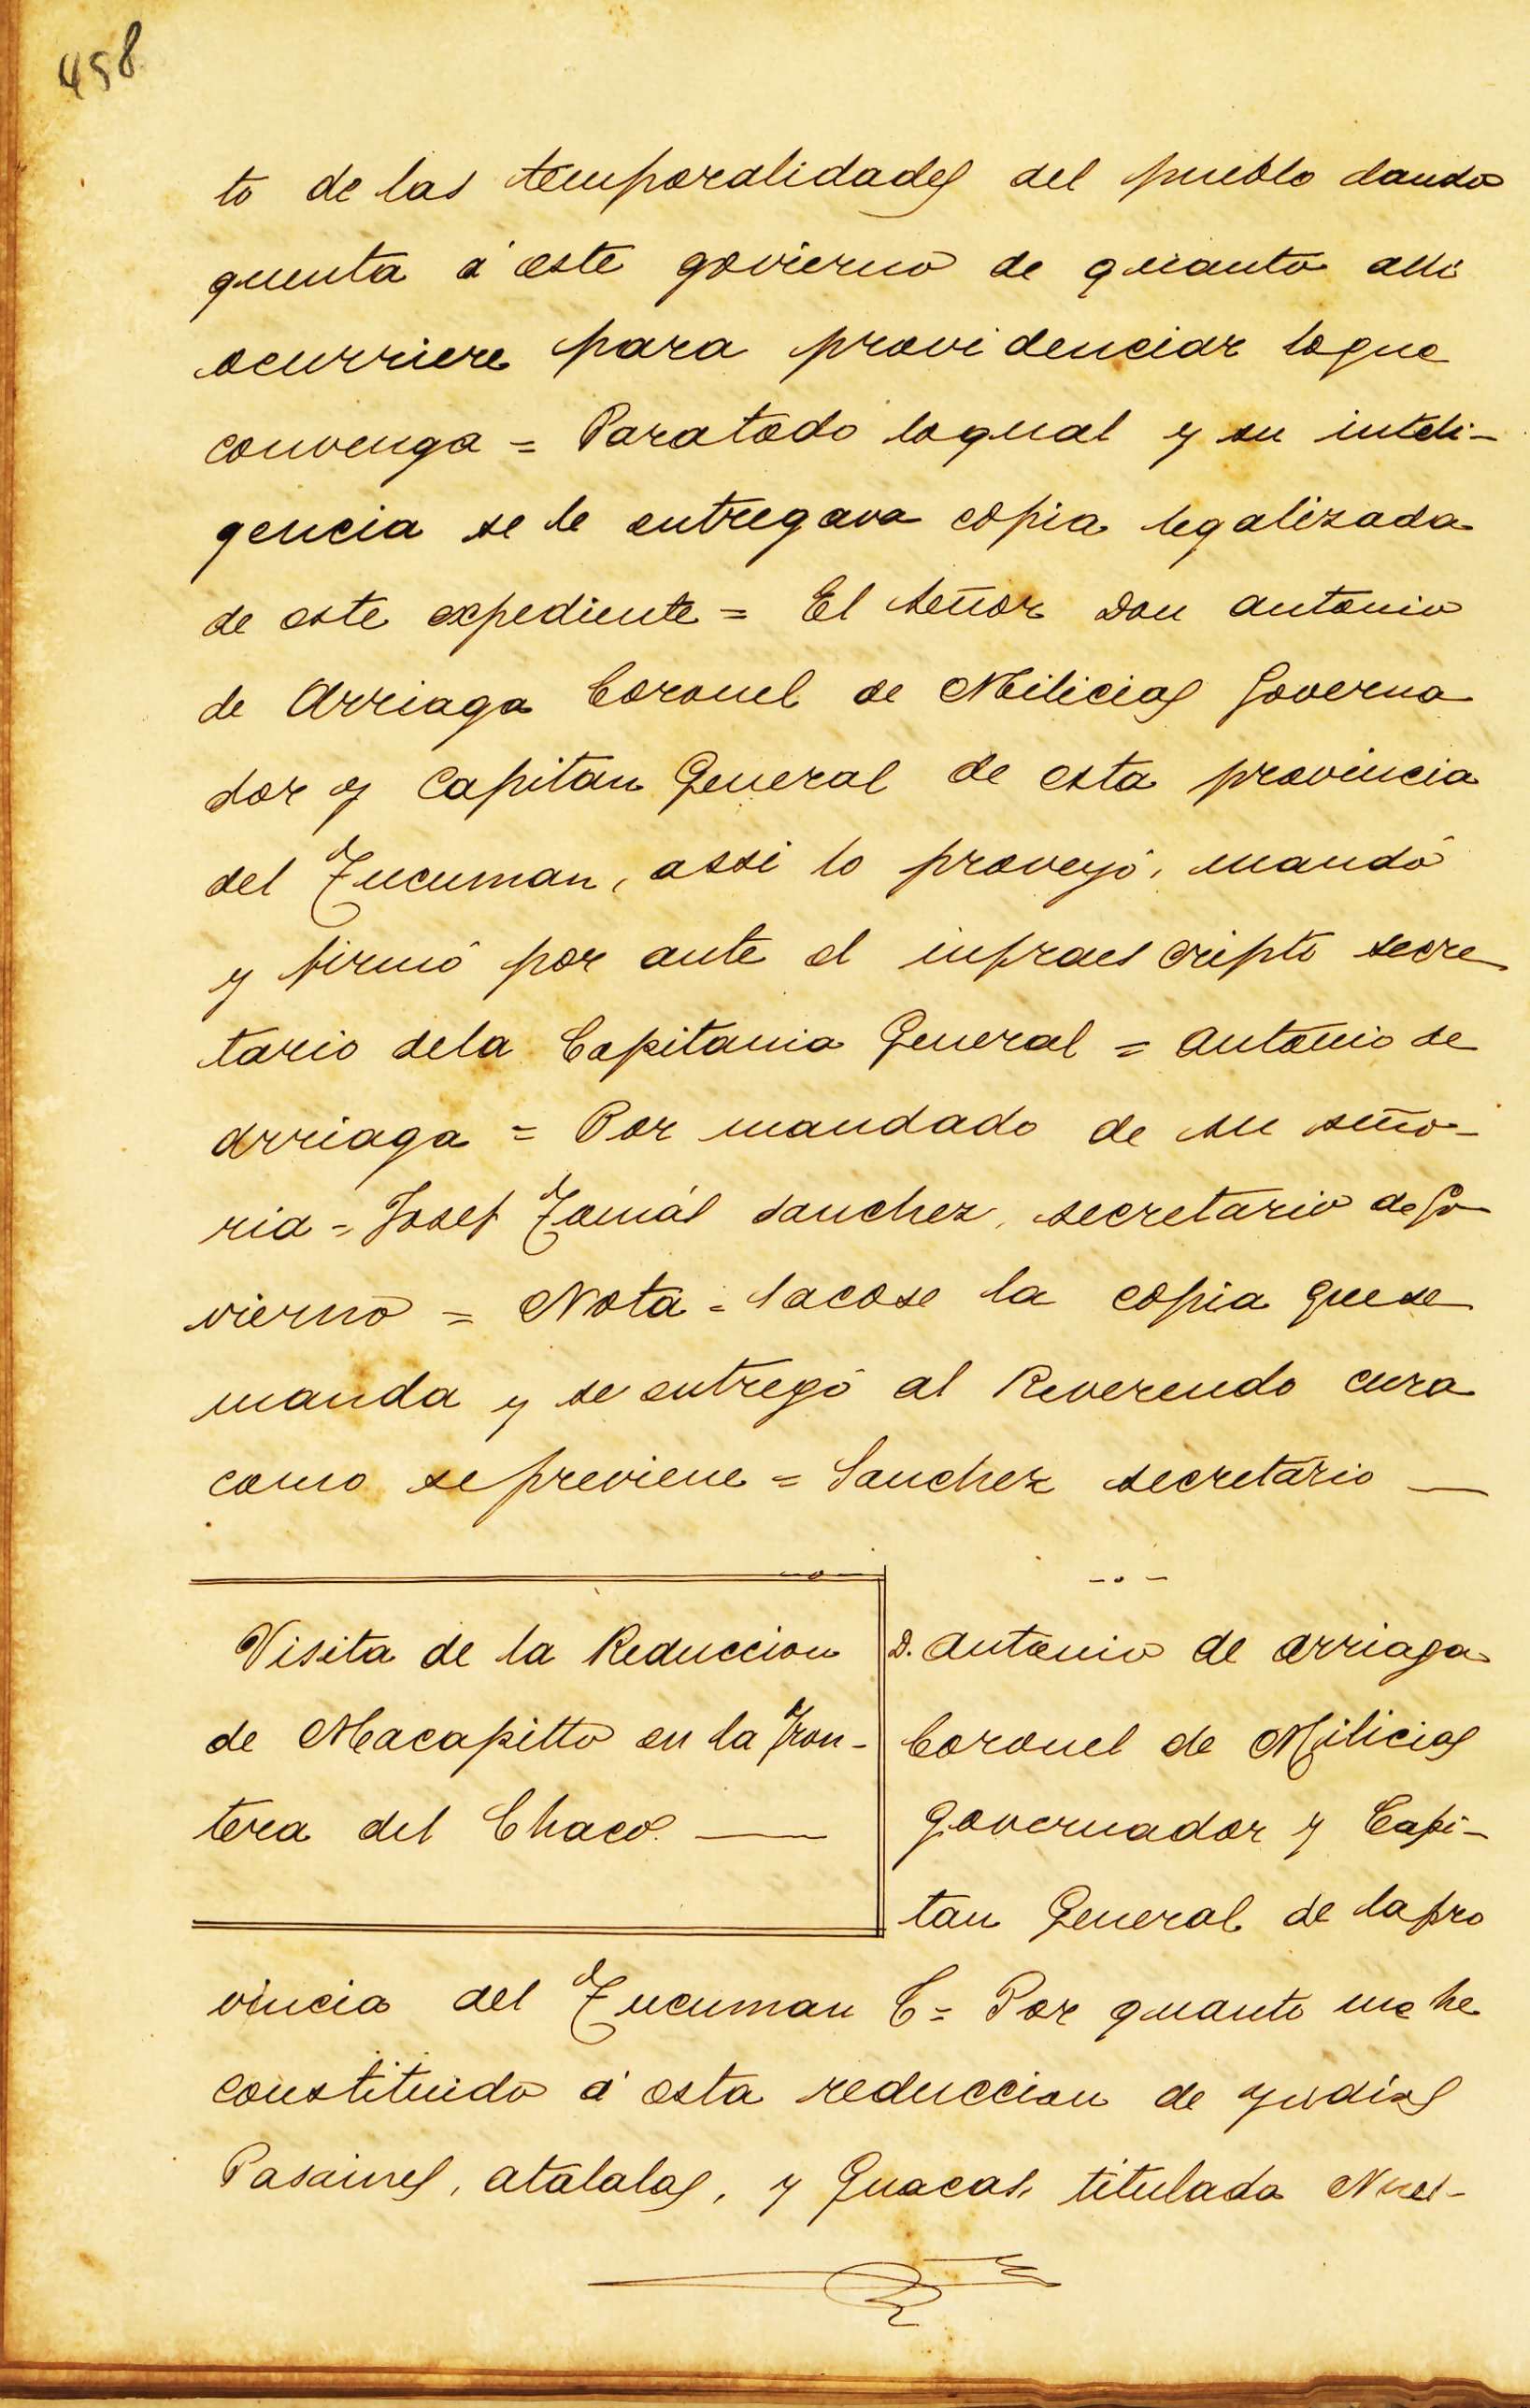 458
to de las temporalidades del pueblo dando
quenta á este govierno de quanto alli
ocurriere para providenciar loque
convenga = Paratodo loqual y su inteli-
gencia se le entregava copia legalizada
de este expediente = El señor Don antonio
de Arriaga Coronel de Milicias Governa
dor y Capitan General de esta provincia
del Tucuman, assi lo proveyó, mandó
y firmó por ante el infraescripto secre
tario dela Capitania General = antonio de
arriaga = Por mandado de su seño-
ria = Josef Tomás sanchez, secretario de Go
vierno = Nota = sacose la copia quese
manda y se entregó al Reverendo cura
como se previene = Sanchez secretario —
Visita de la Reduccion
de Macapitto en la Fron-
tera del Chaco. —
D. antonio de arriaga
Coronel de Milicias
Governador y Capi-
tan General de lapro
vincia del Tucuman &= Por quanto me he
constituido á esta reduccion de yndios
Pasaines, atalalas, y Guacas, titulada Nues-